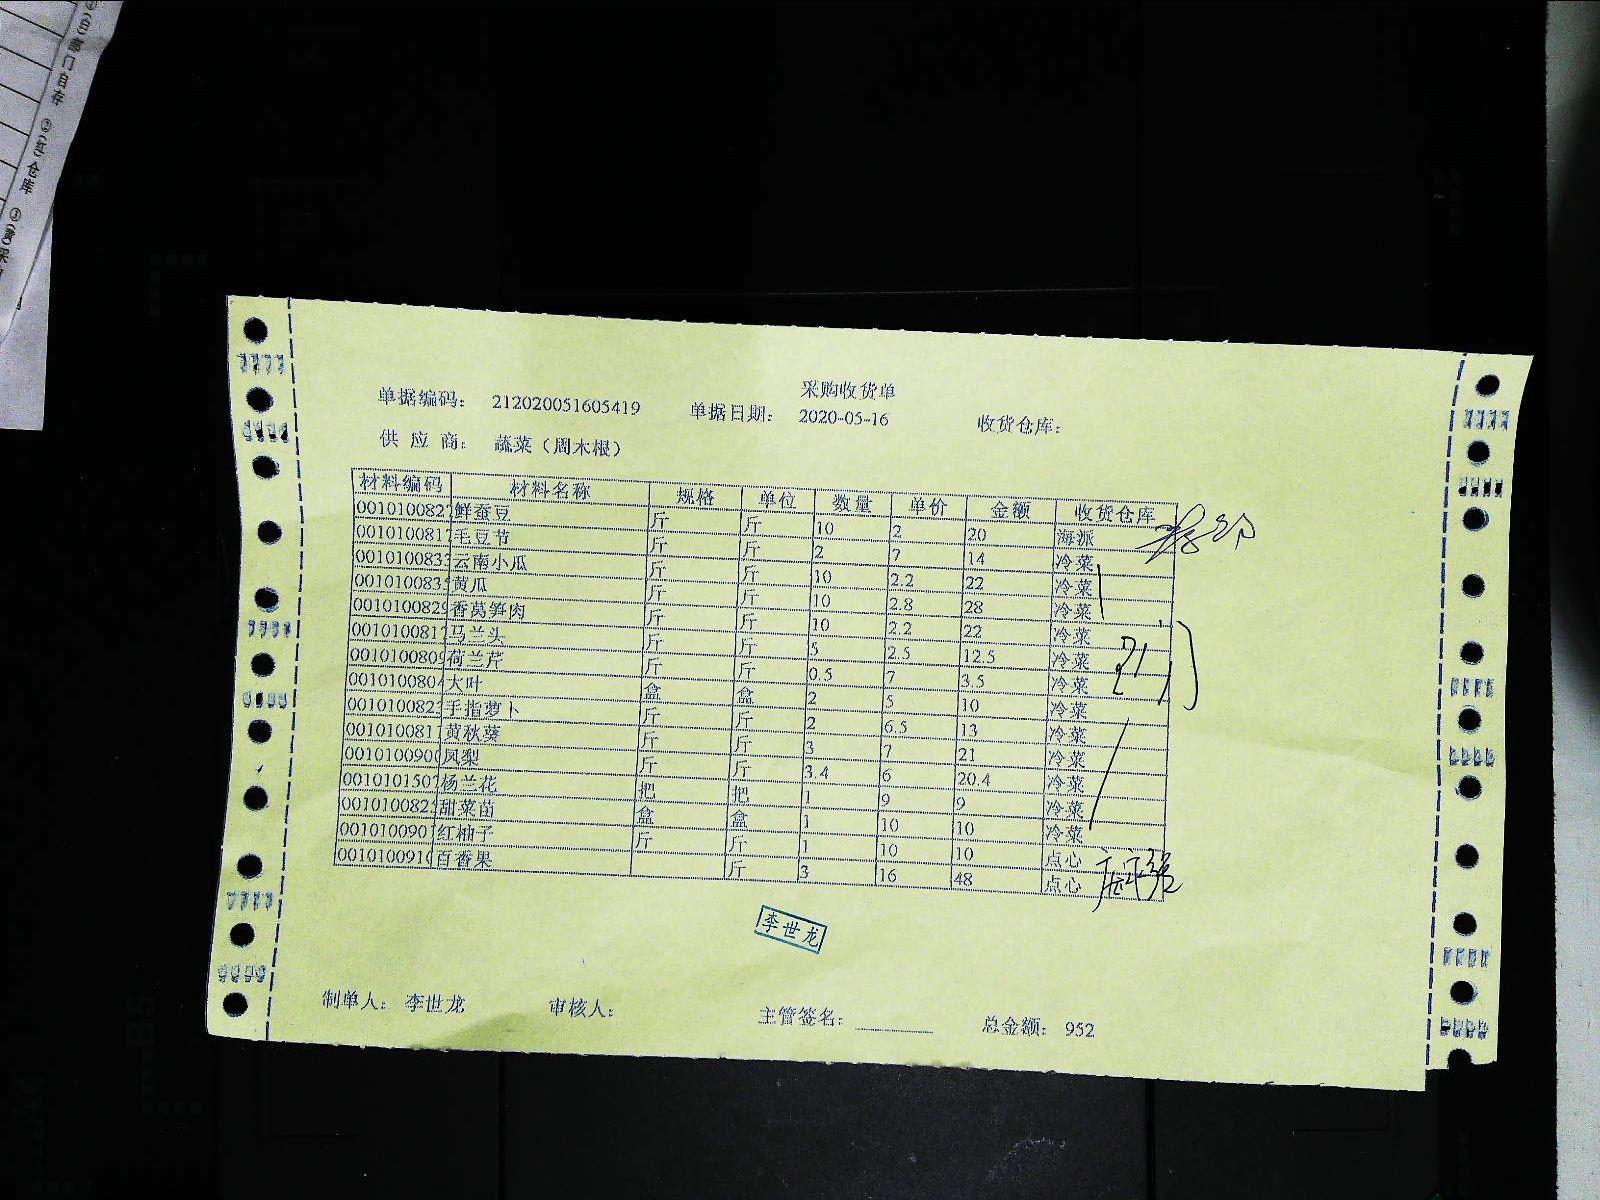 采购收货单
单据编码： 212020051605419 单据日期： 2020-05-16 收货仓库：
供 应 商： 蔬菜（周木根）
材料编码 材料名称 规格 单位 数量 单价 金额 收货仓库
0010100827 鲜蚕豆 斤 斤 10 2 20 海派
0010100817 毛豆节 斤 斤 2 7 14 冷菜
0010100833 云南小瓜 斤 斤 10 2.2 22 冷菜
0010100835 黄瓜 斤 斤 10 2.8 28 冷菜
0010100829 香莴笋肉 斤 斤 10 2.2 22 冷菜
0010100817 马兰头 斤 斤 5 2.5 12.5 冷菜
0010100809 荷兰芹 斤 斤 0.5 7 3.5 冷菜
0010100804 大叶 盒 盒 2 5 10 冷菜
0010100823 手指萝卜 斤 斤 2 6.5 13 冷菜
0010100811 黄秋葵 斤 斤 3 7 21 冷菜
0010100900 凤梨 斤 斤 3.4 6 20.4 冷菜
0010101507 杨兰花 把 把 1 9 9 冷菜
0010100825 甜菜苗 盒 盒 1 10 10 冷菜
0010100901 红柚子 斤 斤 1 10 10 点心
0010100910 百香果 斤 3 16 48 点心
李世龙
制单人： 李世龙 审核人： 主管签名： 总金额： 952
①(白)部门自存 ②(红)仓库